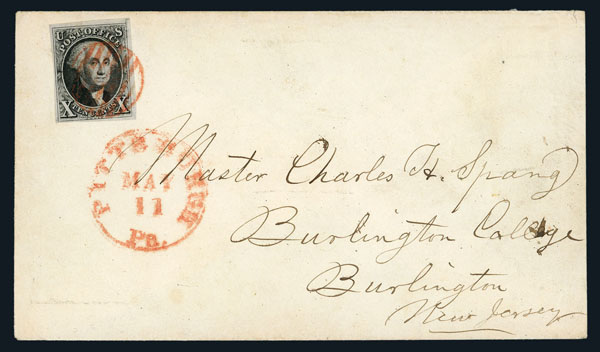 U S
POST OFFICE
X TEN CENTS X
PITTSBURGH
MAY
11
Pa.
Master Charles H. Spang
Burlington College
Burlington
New Jersey